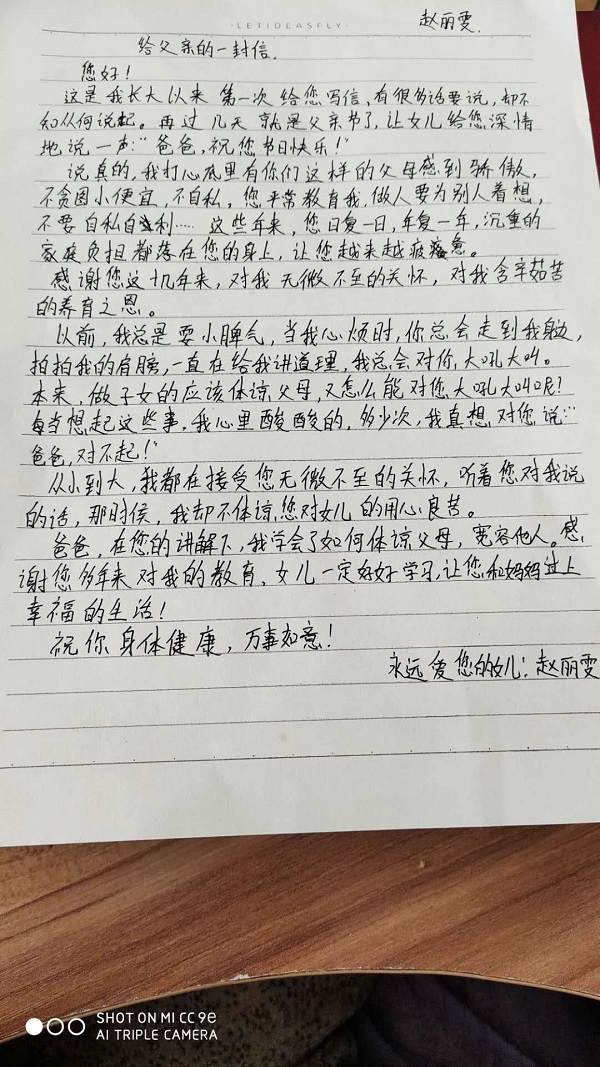 ·LETIDEASFLY·
赵丽雯.
给父亲的一封信.
您好!
这是我长大以来第一次给您写信,有很多话要说,却不
知从何说起。再过几天就是父亲节了,让女儿给您深情
地说一声:"爸爸,祝您节日快乐!"
说真的,我打心底里有你们这样的父母感到骄傲,
不贪图小便宜,不自私,您平常教育我,做人要为别人着想,
不要自私自利…… 这些年来,您日复一日,年复一年,沉重的
家庭负担都落在您的身上,让您越来越疲惫。
感谢您这十几年来,对我无微不至的关怀,对我含辛茹苦
的养育之恩。
以前,我总是耍小脾气,当我心烦时,你总会走到我身边,
拍拍我的肩膀,一直在给我讲道理,我总会对你大吼大叫。
本来,做子女的应该体谅父母,又怎么能对您大吼大叫呢?
每当想起这些事,我心里酸酸的,多少次,我真想对您说:"
爸爸,对不起!"
从小到大,我都在接受您无微不至的关怀,听着您对我说
的话,那时候,我却不体谅您对女儿的用心良苦。
爸爸,在您的讲解下,我学会了如何体谅父母,宽容他人。感
谢您多年来对我的教育、女儿一定好好学习,让您和妈妈过上
幸福的生活!
祝你身体健康,万事如意!
永远爱您的女儿:赵丽雯
SHOT ON MI CC 9e
AI TRIPLE CAMERA